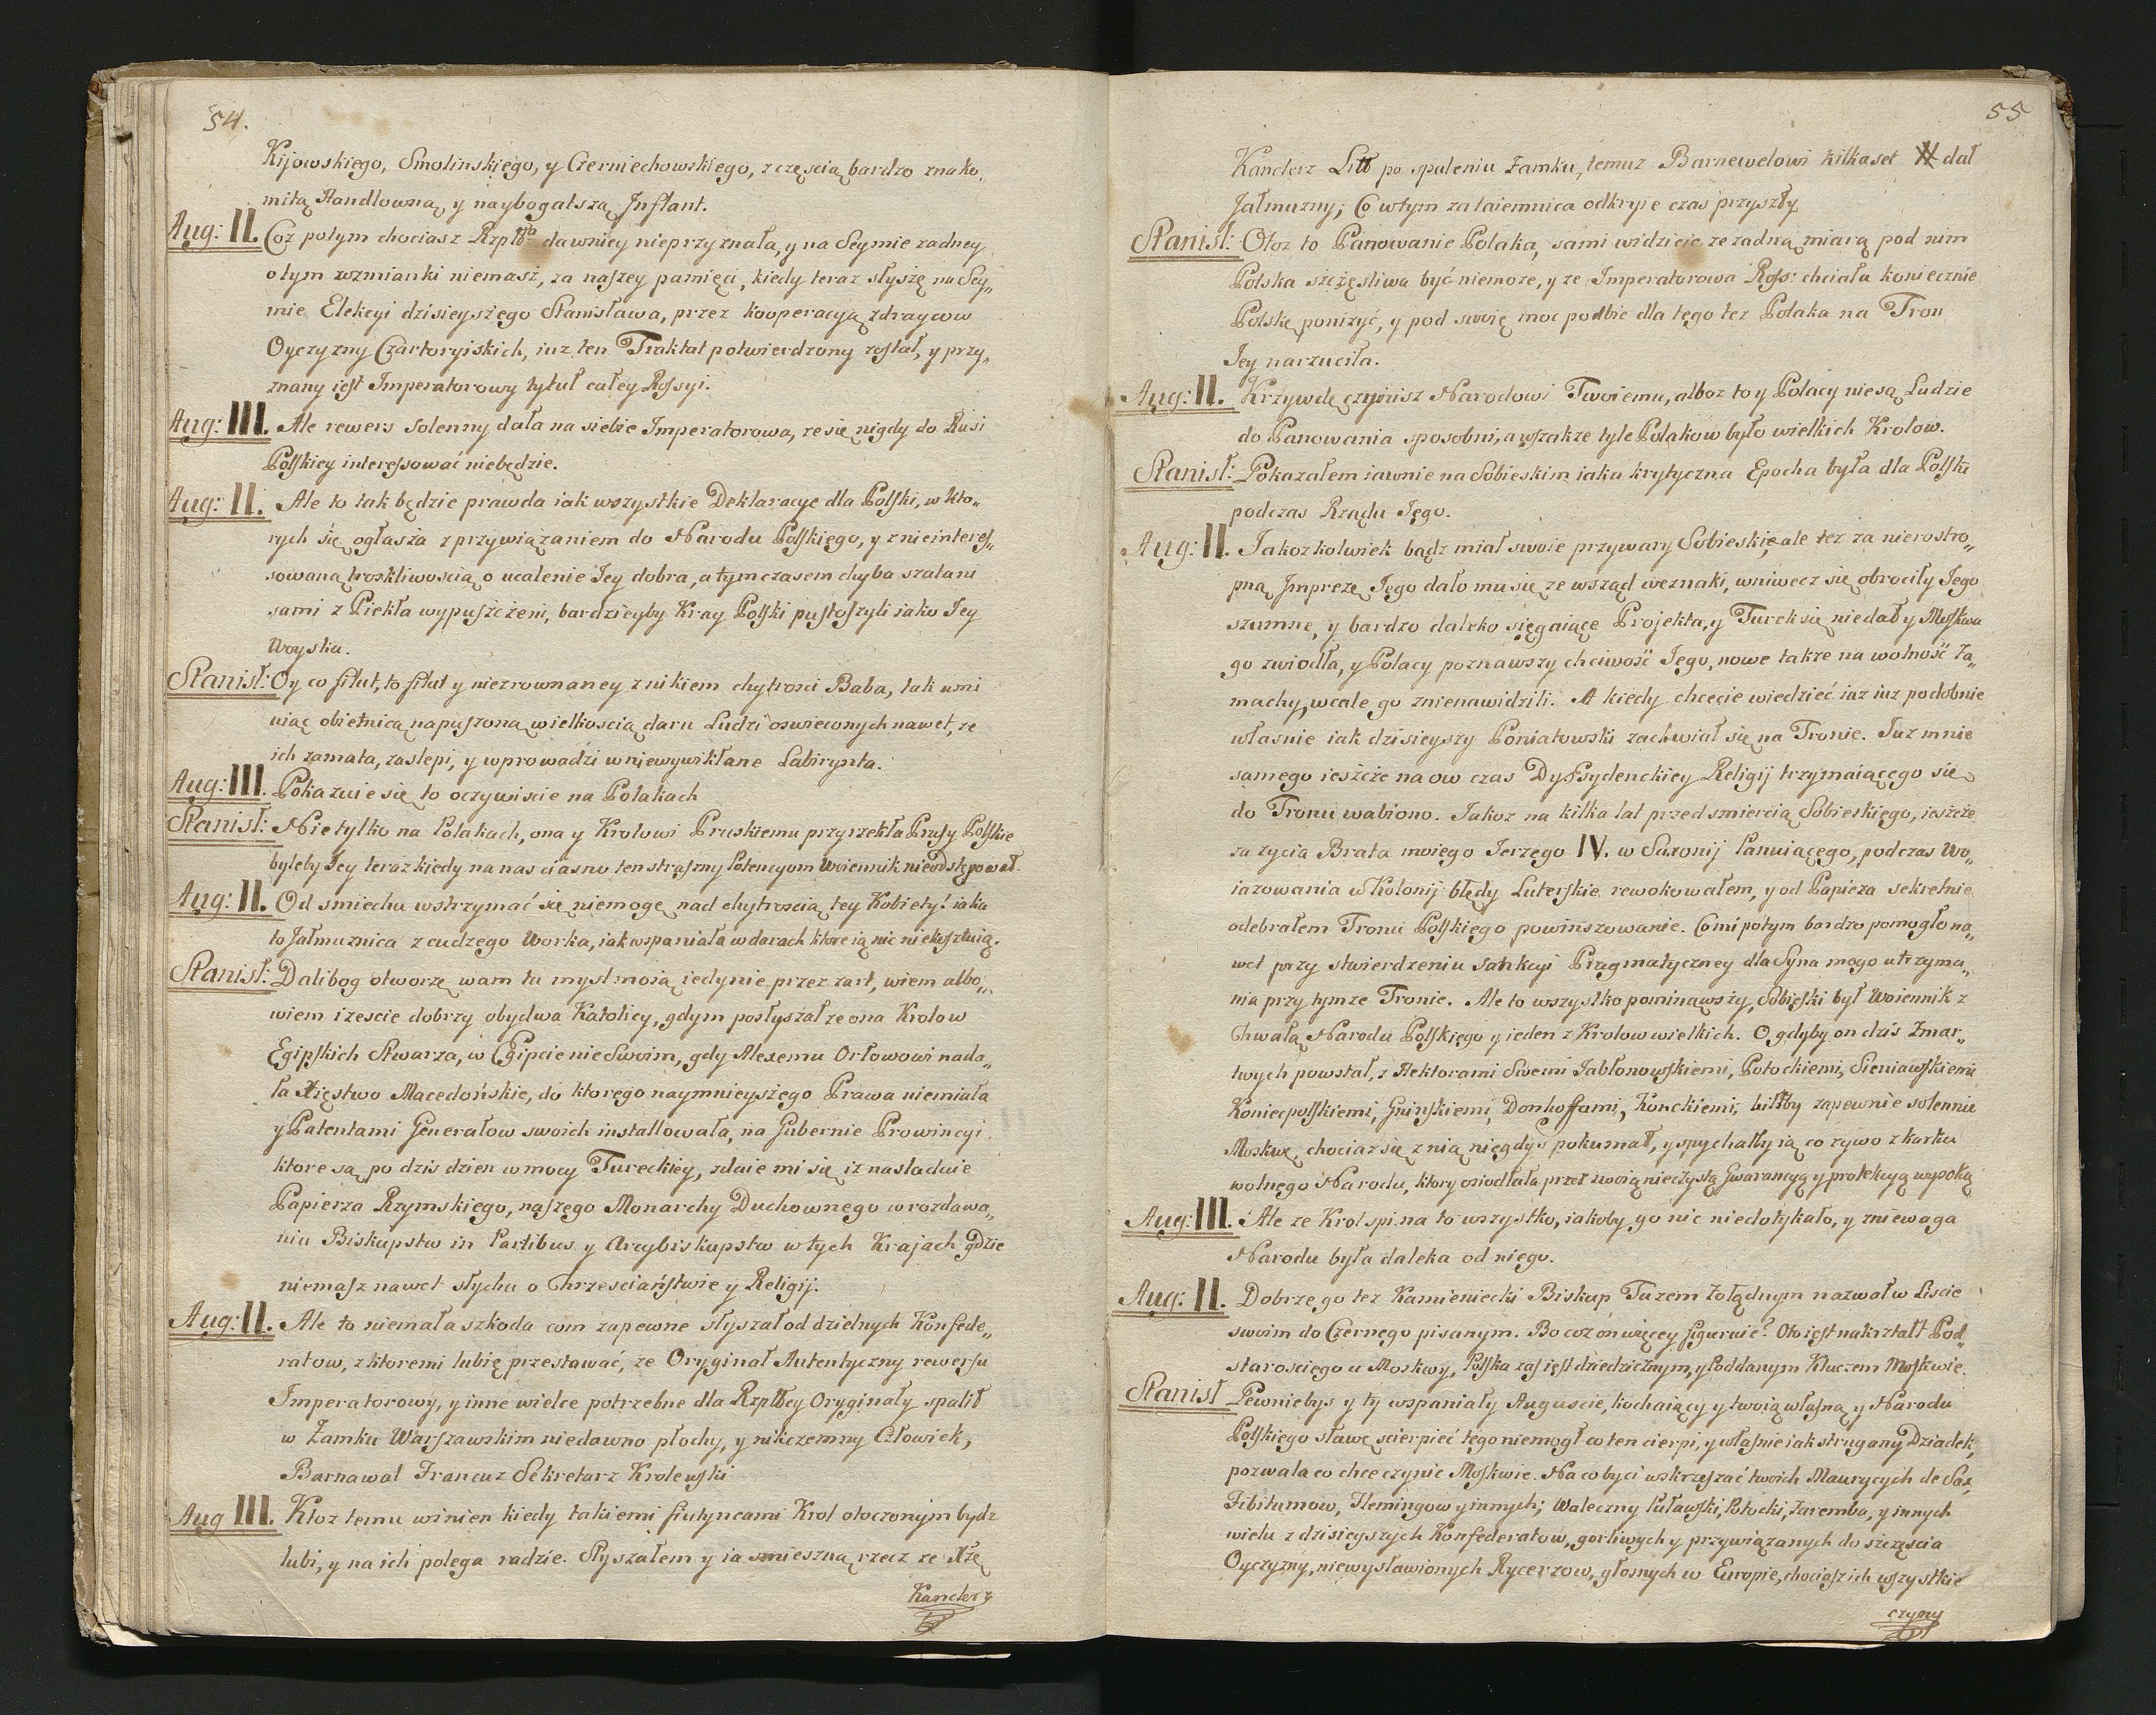 54.
Kijowskiego, Smolinskiego, y Czerniechowskiego, z częscią bardzo znako„
mitą Handlowną, y naybogatszą Jnflant.
Aug: II. Coz potym chociasz Rzplta dawniey nieprzyznała, y na Seymie zadney
o tym wzmianki niemasz, za naszey pamięci, kiedy teraz słyszę na Sey„
mie Elekcyi dzisieyszego Stanisława, przez kooperacyą zdraycow
Oyczyzny Czartoryiskich, iuz ten Traktat potwierdzony został, y przy„
znany iest Imperatorowy tytuł całey Rossyi.
Aug: III. Ale rewers solenny dała na siebie Imperatorowa, ze się nigdy do Rusi
Polskiey interessować niebędzie.
Aug: II. Ale to tak będzie prawda iak wszystkie Deklaracye dla Polski, w kto„
rych się ogłasza z przywiązaniem do Narodu Polskięgo, y z nieinteres„
sowaną troskliwoscią o ucalenie Jey dobra, a tym czasem chyba szatani
sami z Piekła wypuszczeni, bardzieyby Kray Polski pustoszyli iako Jey
Woyska.
Stanisł: Oy co filut, to filut y niezrownaney z nikiem chytrosci Baba, tak umi
uiąc obietnicą napuszoną wielkoscią daru Ludzi oswieconych nawet, ze
ich zamata, zaslepi, y wprowadzi w niewywikłane Labirynta.
Aug: III. Pokazuie się to oczywiscie na Polakach
Stanisł: Nie tylko na Polakach, ona y Krolowi Pruskiemu przyrzekła Prusy Polskie
byleby Jey teraz kiedy na nas ciasno ten straszny Potencyom Woiennik nieodstępował.
Aug: II. Od smiechu wstrzymać się niemogę nad chytroscią tey Kobiety! iaka
to Jałmuznica z cudzego Worka, iak wspaniała w darach ktore ią nic niekosztuią.
Stanisł: Dalibog otworzę wam tu mysl moią iedynie przez zart, wiem albo„
wiem izescie dobrzy obydwa Katolicy, gdym posłyszał ze ona Krolow
Egipskich Stwarza, w Egipcie nie Swoim, gdy Alexemu Orłowowi nada„
ła Xięstwo Macedońskie, do ktorego naymnieyszego Prawa niemiała
y Patentami Generałow swoich installowała, na Gubernie Prowincyi
ktore są po dzis dzien w mocy Tureckiey, zdaie mi się iz nasladuie
Papierza Rzymskiego, naszego Monarchy Duchownego w rozdawa„
niu Biskupstw in Partibus y Arcybiskupstw w tych Krajach gdzie
niemasz nawet słychu o Chrzesciaństwie y Religij.
Aug: II. Ale to niemała szkoda com zapewne słyszał od dzielnych Konfede„
ratow, z ktoremi lubię przestawać, ze Oryginał Autentyczny rewersu
Imperatorowy, y inne wielce potrzebne dla Rzpltey Oryginały spalił
w Zamku Warszawskim niedawno płochy, y nikczemny Człowiek,
Barnawal Francuz Sekretarz Krolewski
Aug III. Ktoz temu winien kiedy takiemi fiutyncami Krol otoczonym bydz
lubi, y na ich polega radzie. Słyszałem y ia smieszną rzecz ze Xżę
Kanclerz
55
Kanclerz Litt po spaleniu Zamku, temuz Barnewelowi kilkaset # dał
Jałmuzny; Co w tym za taiemnica odkryie czas przyszły
Stanisł: Otoz to Panowanie Polaka, sami widzicie ze zadną miarą pod nim
Polska szczęsliwa być niemoze, y ze Imperatorowa Ross: chciała koniecznie
Polskę ponizyć, y pod swoię moc podbic dla tego tez Polaka na Tron
Jey narzuciła.
Aug: II. Krzywdę czynisz Narodowi Twoiemu, alboz to y Polacy niesą Ludzie
do Panowania sposobni, a wszakze tyle Polakow było wielkich Krolow.
Stanisł: Pokazałem iawnie na Sobieskim iaka krytyczna Epocha była dla Polski
podczas Rządu Jego.
Aug: II. Jakozkolwiek bądz miał swoie przywary Sobieski, ale tez za nierostro„
pną Jmprezę Jego dało mu się ze wsząd weznaki, wniwecz się obrociły Jego
szumne, y bardzo daleko sięgaiące Projekta, y Turek się niedał y Moskwa
go zwiodła, y Polacy poznawszy chciwość Jego, nowe takze na wolność Za„
machy, wcale go znienawidzili. A kiedy chcecie wiedzieć iuz iuz podobnie
własnie iak dzisieyszy Poniatowski zachwiał się na Tronie. Juz mnie
samego ieszcze na ow czas Dyssydenckiey Religij trzymaiącego się
do Tronu wabiono. Jakoz na kilka lat przed smiercią Sobieskiego, ieszcze
za zycia Brata moiego Jerzego IV. w Saxonij Panuiącego, podczas Wo„
iazowania w Kolonij błędy Luterskie rewokowałem, y od Papieza sekretnie
odebrałem Tronu Polskięgo powinszowanie. Co mi potym bardzo pomogło na„
wet przy stwierdzeniu Sankcyi Pragmatyczney dla Syna mego utrzyma„
nia przy tymze Tronie. Ale to wszystko pominąwszy, Sobieski był Woiennik z
Chwałą Narodu Polskięgo y ieden z Krolow wielkich. O gdyby on dzis Zmar„
twych powstał, z Hektorami Swemi Jabłonowskiemi, Potockiemi, Sieniawskiemi
Koniecpolskiemi, Gninskiemi, Donhoffami, Konckiemi, biłłby zapewnie solennie
Moskwę, chociaz się z nią niegdys pokumał, y spychałby ią co zywo z karku
wolnego Narodu, ktory osiodłała przez swoią nieczystą Gwarancyą y protekcyą wysoką
Aug: III. Ale ze Krol spi na to wszystko, iakoby go nic niedotykało, y zniewaga
Narodu była daleka od niego.
Aug: II. Dobrze go tez Kamieniecki Biskup Tuzem Zołądnym nazwał w Liscie
swoim do Czernego pisanym. Bo coz on więcey figuruie? Oto iest nakształt Pod„
starosciego u Moskwy, Polska zas iest dziedzicznym, y Poddanym Kluczem Moskwie.
Stanisł Pewniebys y ty wspaniały Auguscie, kochaiący y twoią własną y Narodu
Polskiego sławę scierpieć tego niemogł co ten cierpi, y własnie iak strugany Dziadek,
pozwala co chce czynic Moskwie. Na co by ci wskrzeszać twoich Maurycych de Sax,
Fibitumow, Flemingow y innych; Waleczny Puławski, Potocki, Zaremba, y innych
wielu z dzisieyszych Konfederatow, gorliwych y przywiązanych do szczęscia
Oyczyzny, niewysławionych Rycerzow, głosnych w Europie, chociasz ich wszystkie
czyny